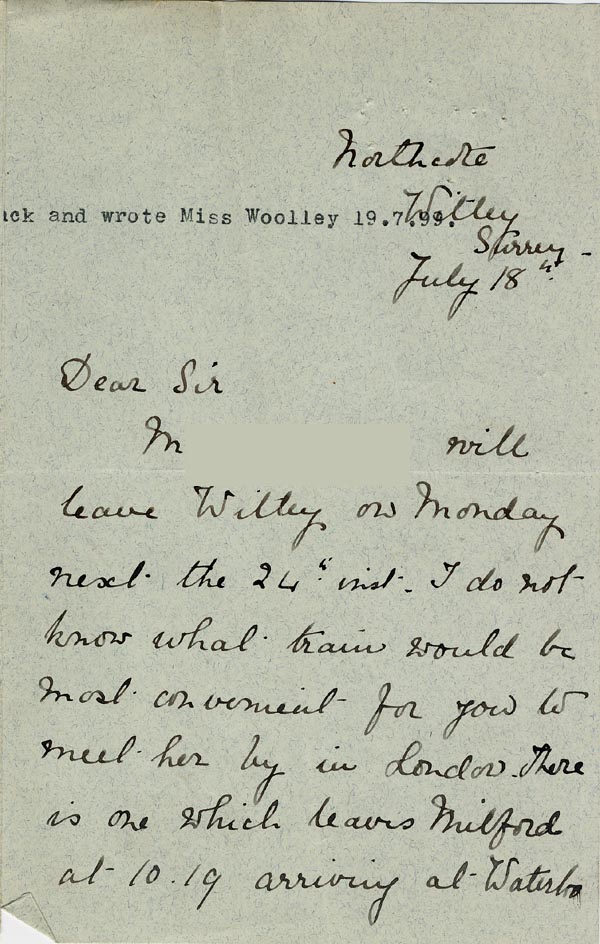 Northcote
Witley
ack and wrote Miss Woolley 19.7.99.
Surrey -
July 18th.
Dear Sir
M will
leave Witley on Monday
next the 24th inst. I do not
know what train would be
most convenient for you to
meet her by in London. There
is one which leaves Milford
at 10.19 arriving at Waterloo